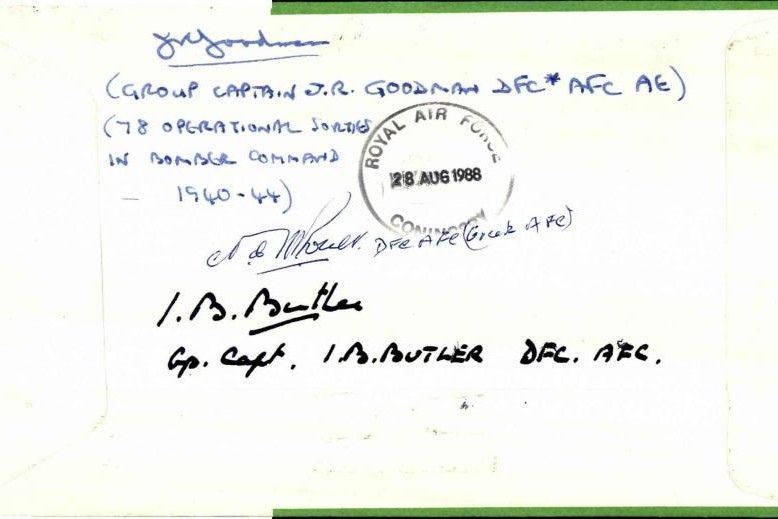 J R Goodman
(GROUP CAPTAIN J.R. GOODMAN DFC* AFC AE)
(78 OPERATIONAL SORTIES
IN BOMBER COMMAND
- 1940-44)
ROYAL AIR FORCE
28 AUG 1988
CONINGSBY
DFC AFC (Greek AFC)
I.B. Butler
Gp. Capt. I.B. BUTLER DFC. AFC.